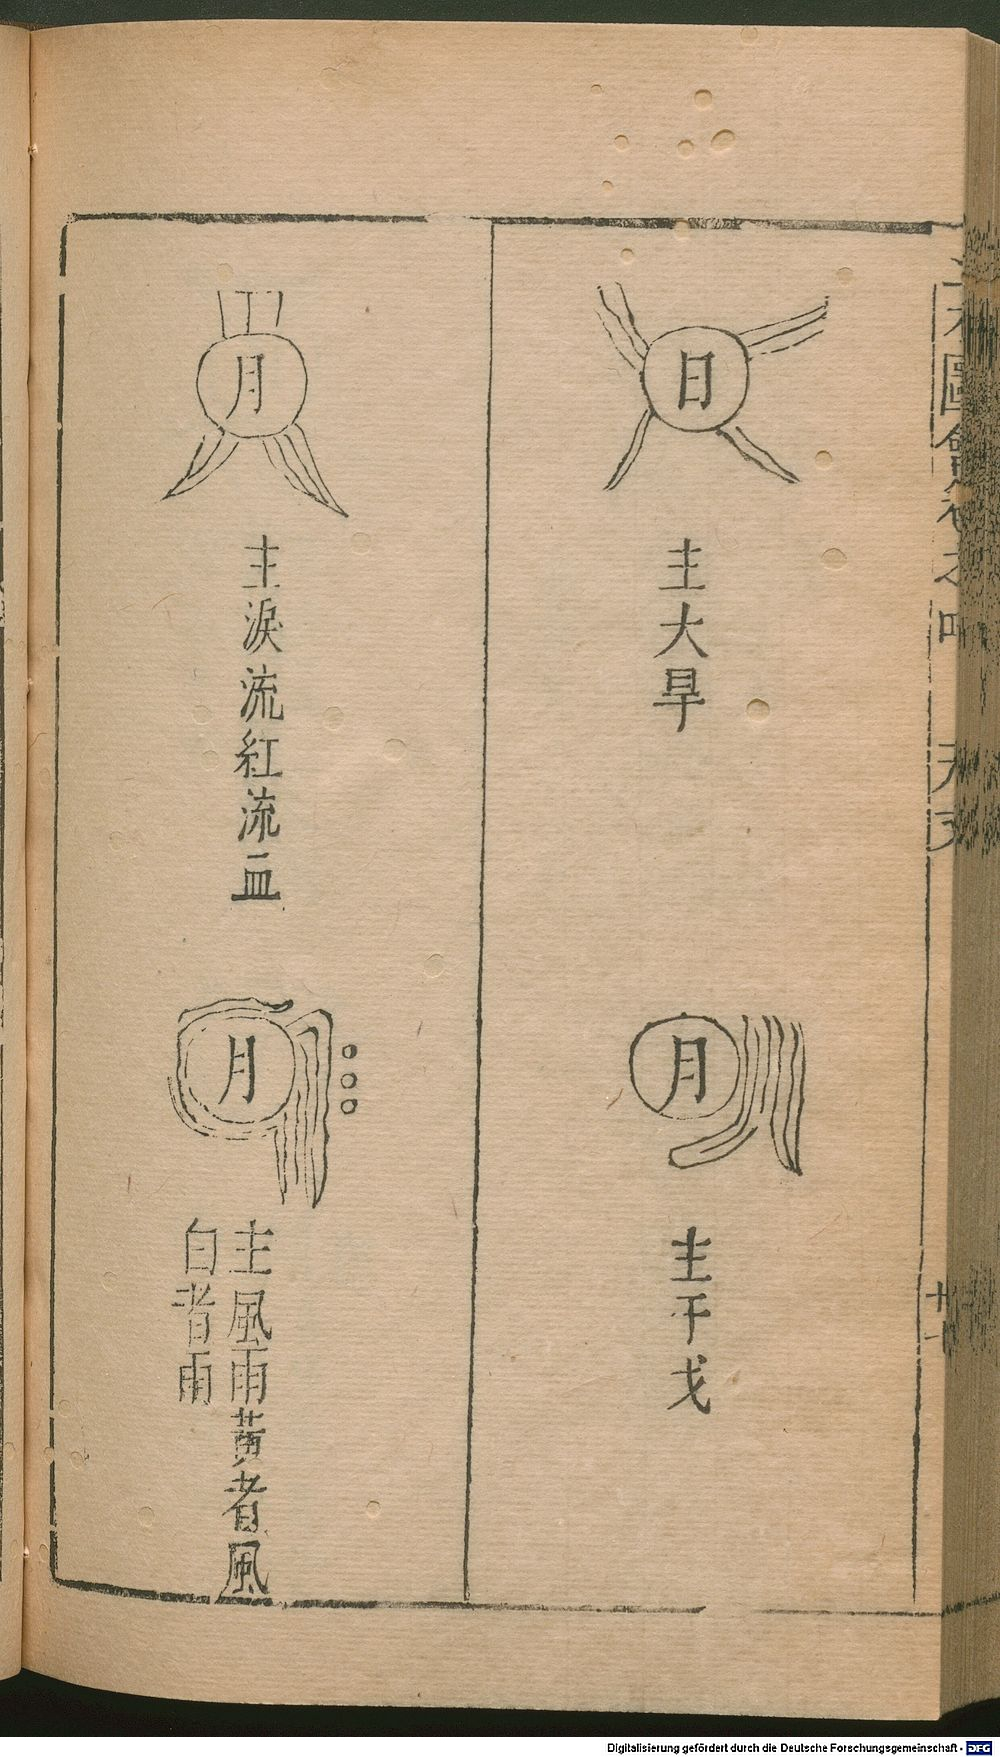 日
主大旱
月
主干戈
月
主淚流紅流血
月
主風雨黃者風
白者雨
天文
Digitalisierung gefördert durch die Deutsche Forschungsgemeinschaft - DFG